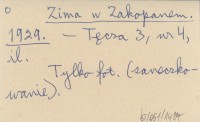 o Zima w Zakopanem.
1929. – Tęcza 3, nr 4,
il.
Tylko fot. (saneczko-
wanie).